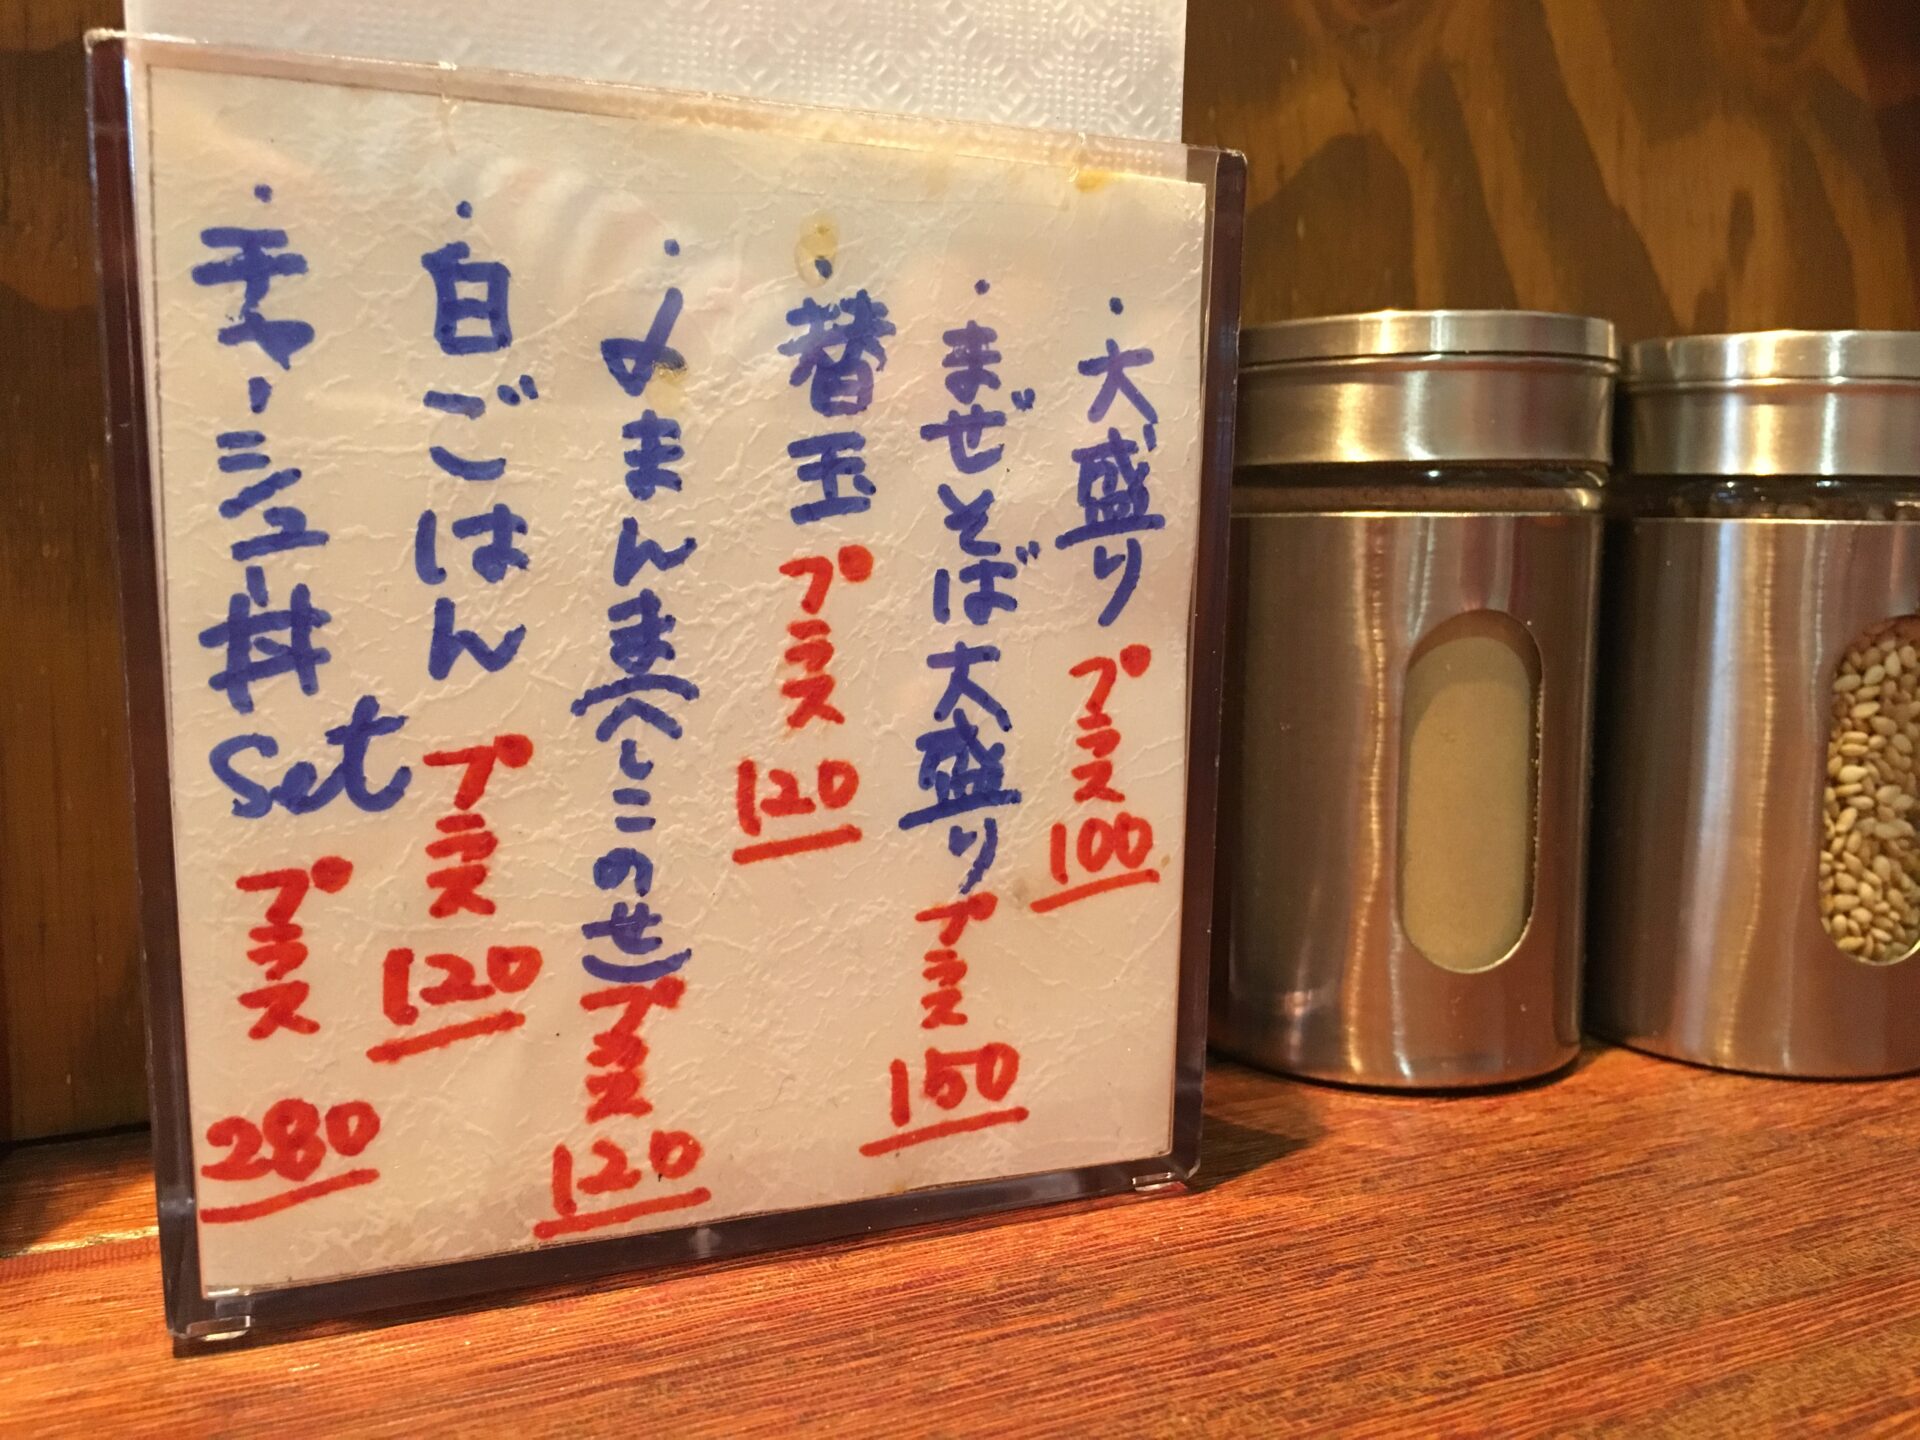 ・大盛り プラス 100
・まぜそば大盛り プラス 150
・替玉 プラス 120
・〆まんま(へしこのせ) プラス 120
・白ごはん プラス 120
・チャーシュー丼 set プラス 280